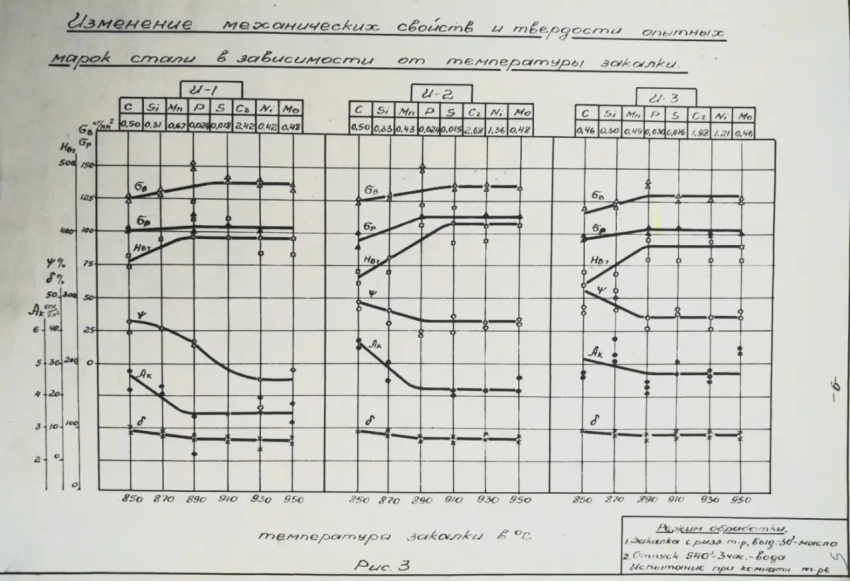 Изменение механических свойств и твердости опытных
марок стали в зависимости от температуры закалки.
И-1
C Si Mn P S Cr Ni Mo
0,50 0,31 0,67 0,024 0,018 2,42 0,42 0,48
И-2
C Si Mn P S Cr Ni Mo
0,50 0,33 0,43 0,024 0,015 2,68 1,36 0,48
И-3
C Si Mn P S Cr Ni Mo
0,46 0,30 0,44 0,030 0,016 1,98 1,21 0,46
σв
σр
Нвт
500
400
300
200
100
0
150
125
100
75
50
25
0
ψ%
δ%
50
40
30
20
10
0
Ак
6
5
4
3
2
σв
σр
Нвт
ψ
Ак
δ
σв
σр
Нвт
ψ
Ак
δ
σв
σр
Нвт
ψ
Ак
δ
850 870 890 910 930 950
850 870 890 910 930 950
850 870 890 910 930 950
температура закалки в °С
Рис. 3
-6-
Режим обработки.
1. Закалка с разл. т-р, выд. 30'-масло
2. Отпуск 540°-3час.-вода
Испытание при комнатн. т-ре
5